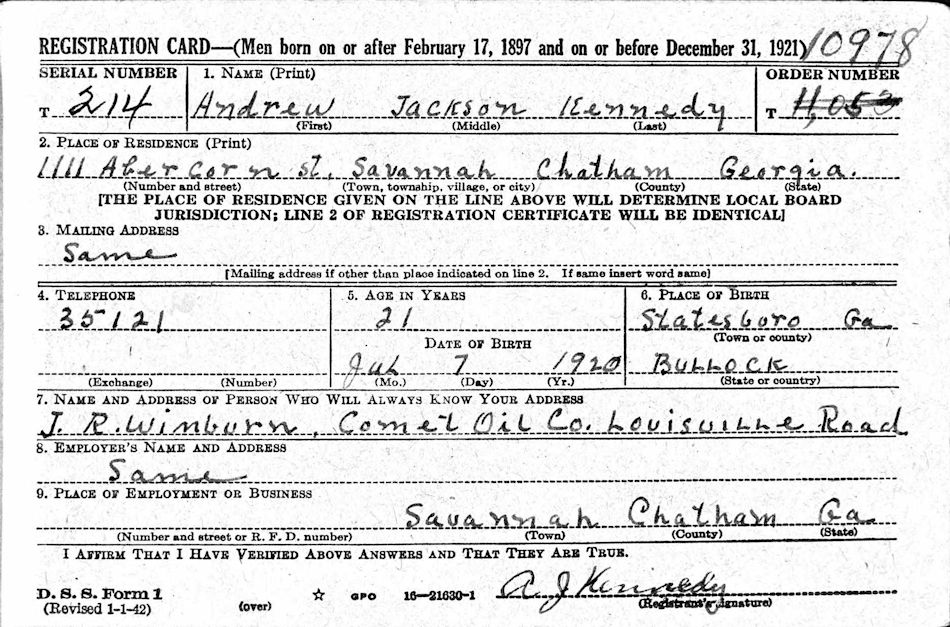 REGISTRATION CARD—(Men born on or after February 17, 1897 and on or before December 31, 1921) 10978
SERIAL NUMBER 1. NAME (Print) ORDER NUMBER
T 214 Andrew Jackson Kennedy T 11,053
(First) (Middle) (Last)
2. PLACE OF RESIDENCE (Print)
1111 Abercorn st. Savannah Chatham Georgia.
(Number and street) (Town, township, village, or city) (County) (State)
[THE PLACE OF RESIDENCE GIVEN ON THE LINE ABOVE WILL DETERMINE LOCAL BOARD
JURISDICTION; LINE 2 OF REGISTRATION CERTIFICATE WILL BE IDENTICAL]
3. MAILING ADDRESS
Same
[Mailing address if other than place indicated on line 2. If same insert word same]
4. TELEPHONE 5. AGE IN YEARS 6. PLACE OF BIRTH
35121 21 Statesboro Ga
(Town or county)
DATE OF BIRTH
July 7 1920 BULLOCK
(Exchange) (Number) (Mo.) (Day) (Yr.) (State or country)
7. NAME AND ADDRESS OF PERSON WHO WILL ALWAYS KNOW YOUR ADDRESS
J. R. Winburn, Comet Oil Co. Louisville Road
8. EMPLOYER'S NAME AND ADDRESS
Same
9. PLACE OF EMPLOYMENT OR BUSINESS
Savannah Chatham Ga
(Number and street or R. F. D. number) (Town) (County) (State)
I AFFIRM THAT I HAVE VERIFIED ABOVE ANSWERS AND THAT THEY ARE TRUE.
D. S. S. Form 1
(Revised 1-1-42) (over) ☆ GPO 16—21630-1 A J Kennedy
(Registrant's signature)